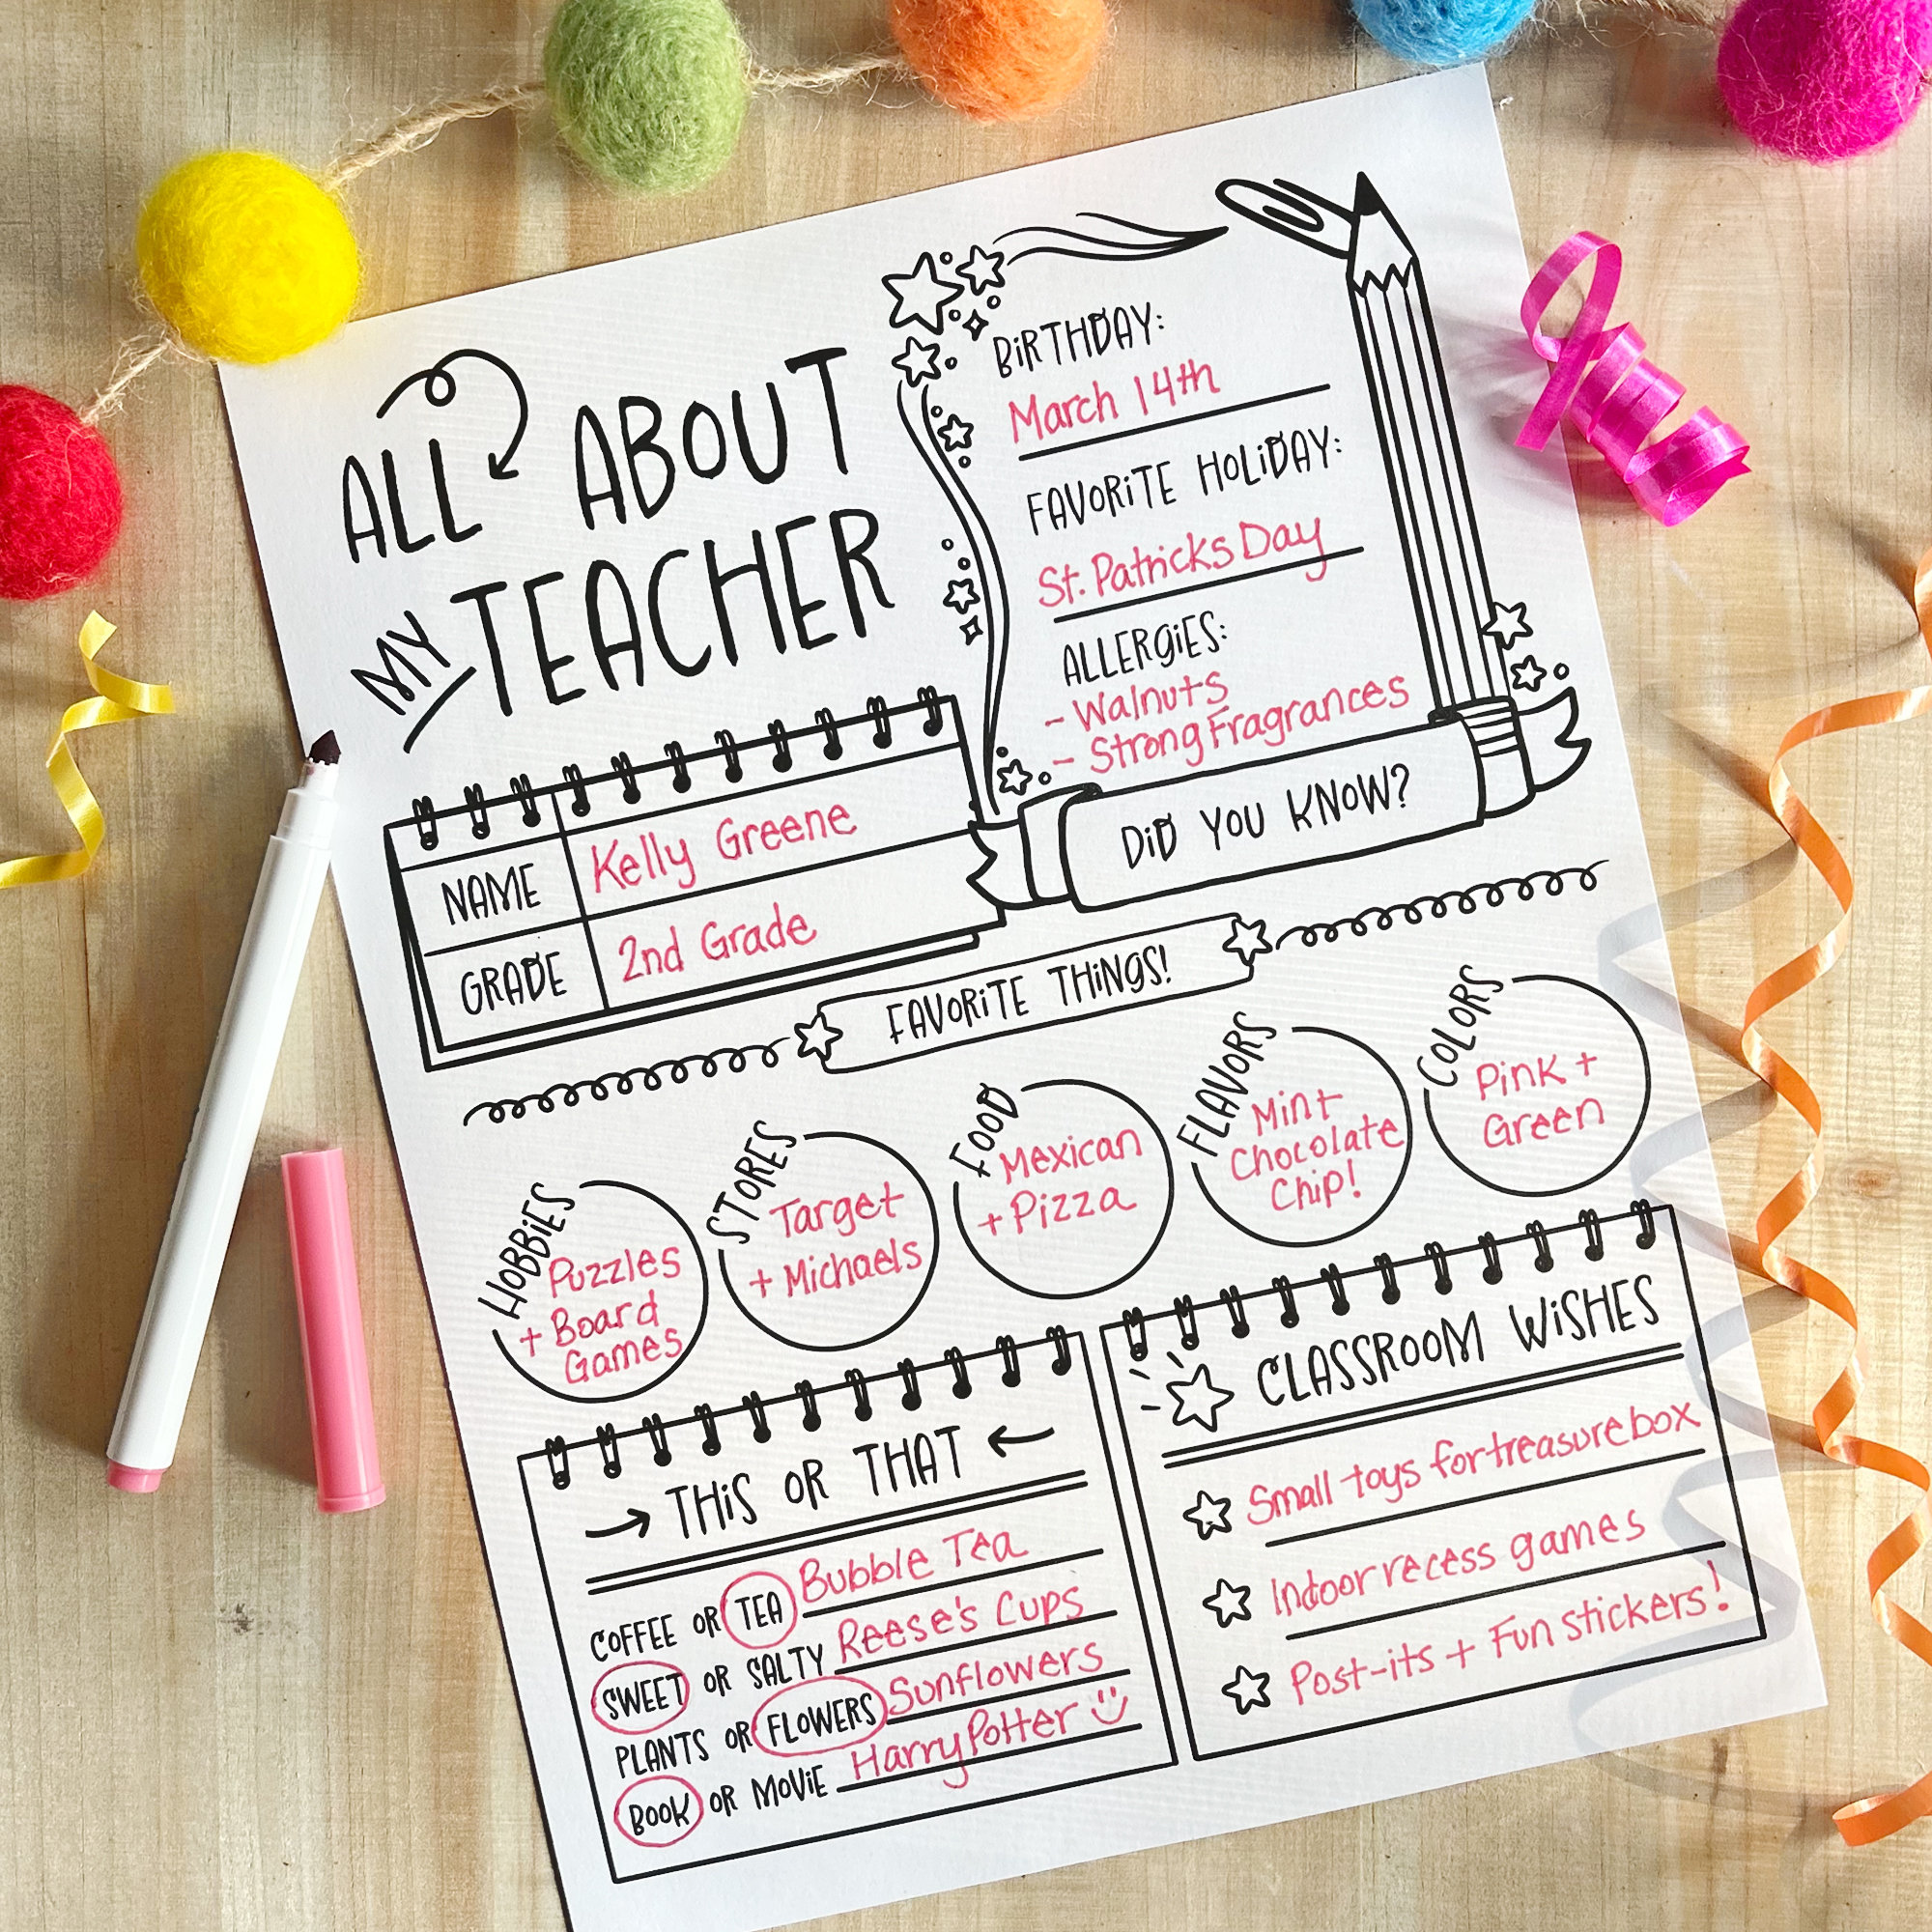 ALL ABOUT
MY TEACHER
NAME Kelly Greene
GRADE 2nd Grade
BIRTHDAY:
March 14th
FAVORITE HOLIDAY:
St. Patricks Day
ALLERGIES:
- Walnuts
- Strong Fragrances
DID YOU KNOW?
FAVORITE THINGS!
HOBBIES
Puzzles
+ Board
Games
STORES
Target
+ Michaels
FOOD
Mexican
+ Pizza
FLAVORS
Mint
Chocolate
Chip!
COLORS
Pink +
Green
THIS OR THAT
COFFEE OR TEA Bubble Tea
SWEET OR SALTY Reese's Cups
PLANTS OR FLOWERS Sunflowers
BOOK OR MOVIE Harry Potter
CLASSROOM WISHES
Small toys for treasure box
Indoor recess games
Post-its + Fun stickers!